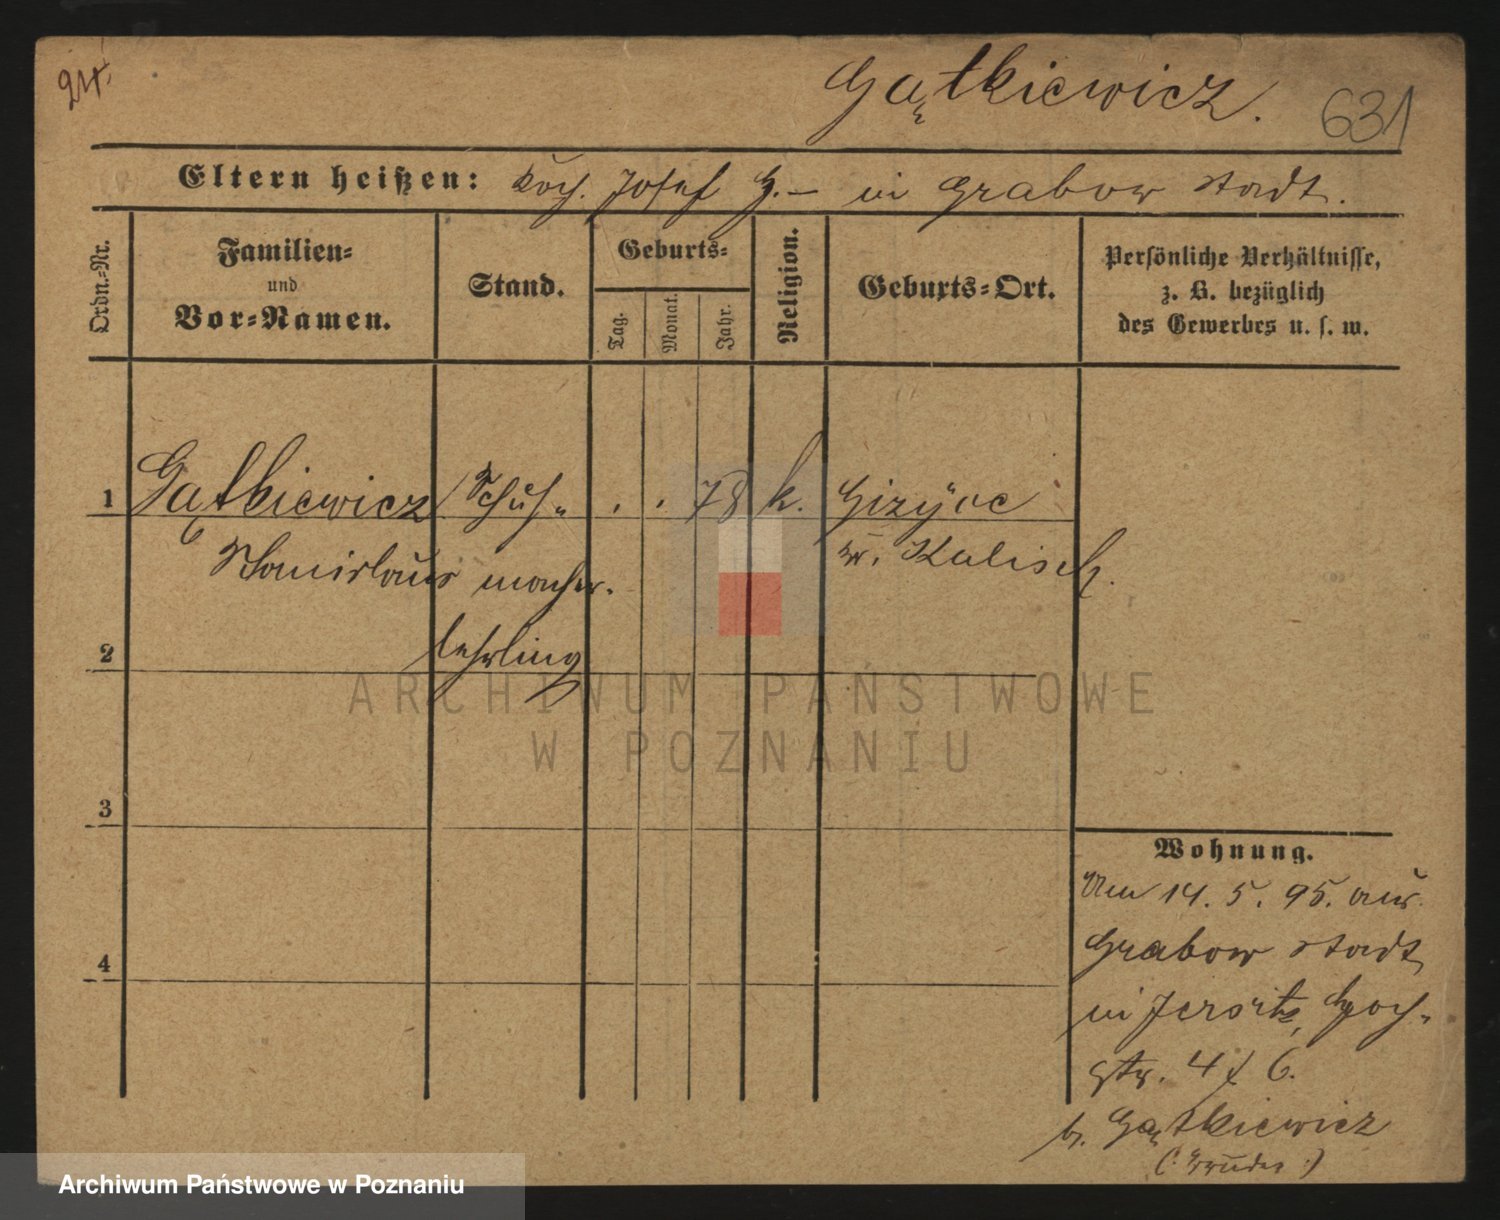 24.
Gątkiewicz.
631
Eltern heißen: Koch. Josef G. – in Grabow Stadt.
Ordn.=Nr.
Familien=
und
Vor=Namen.
Stand.
Geburts=
Tag.
Monat.
Jahr.
Religion.
Geburts=Ort.
Persönliche Verhältnisse,
z. B. bezüglich
des Gewerbes u. s. w.
1 Gątkiewicz Schuh= . . 78 k. Gizyce
Stanislaus macher. Kr. Kalisch.
2 lehrling
ARCHIWUM PAŃSTWOWE
W POZNANIU
3
Wohnung.
Am 14. 5. 95. aus
Grabow Stadt
4
in Jersitz,
Str. 4 / 6.
b. Gątkiewicz
(: Bruder :)
Archiwum Państwowe w Poznaniu